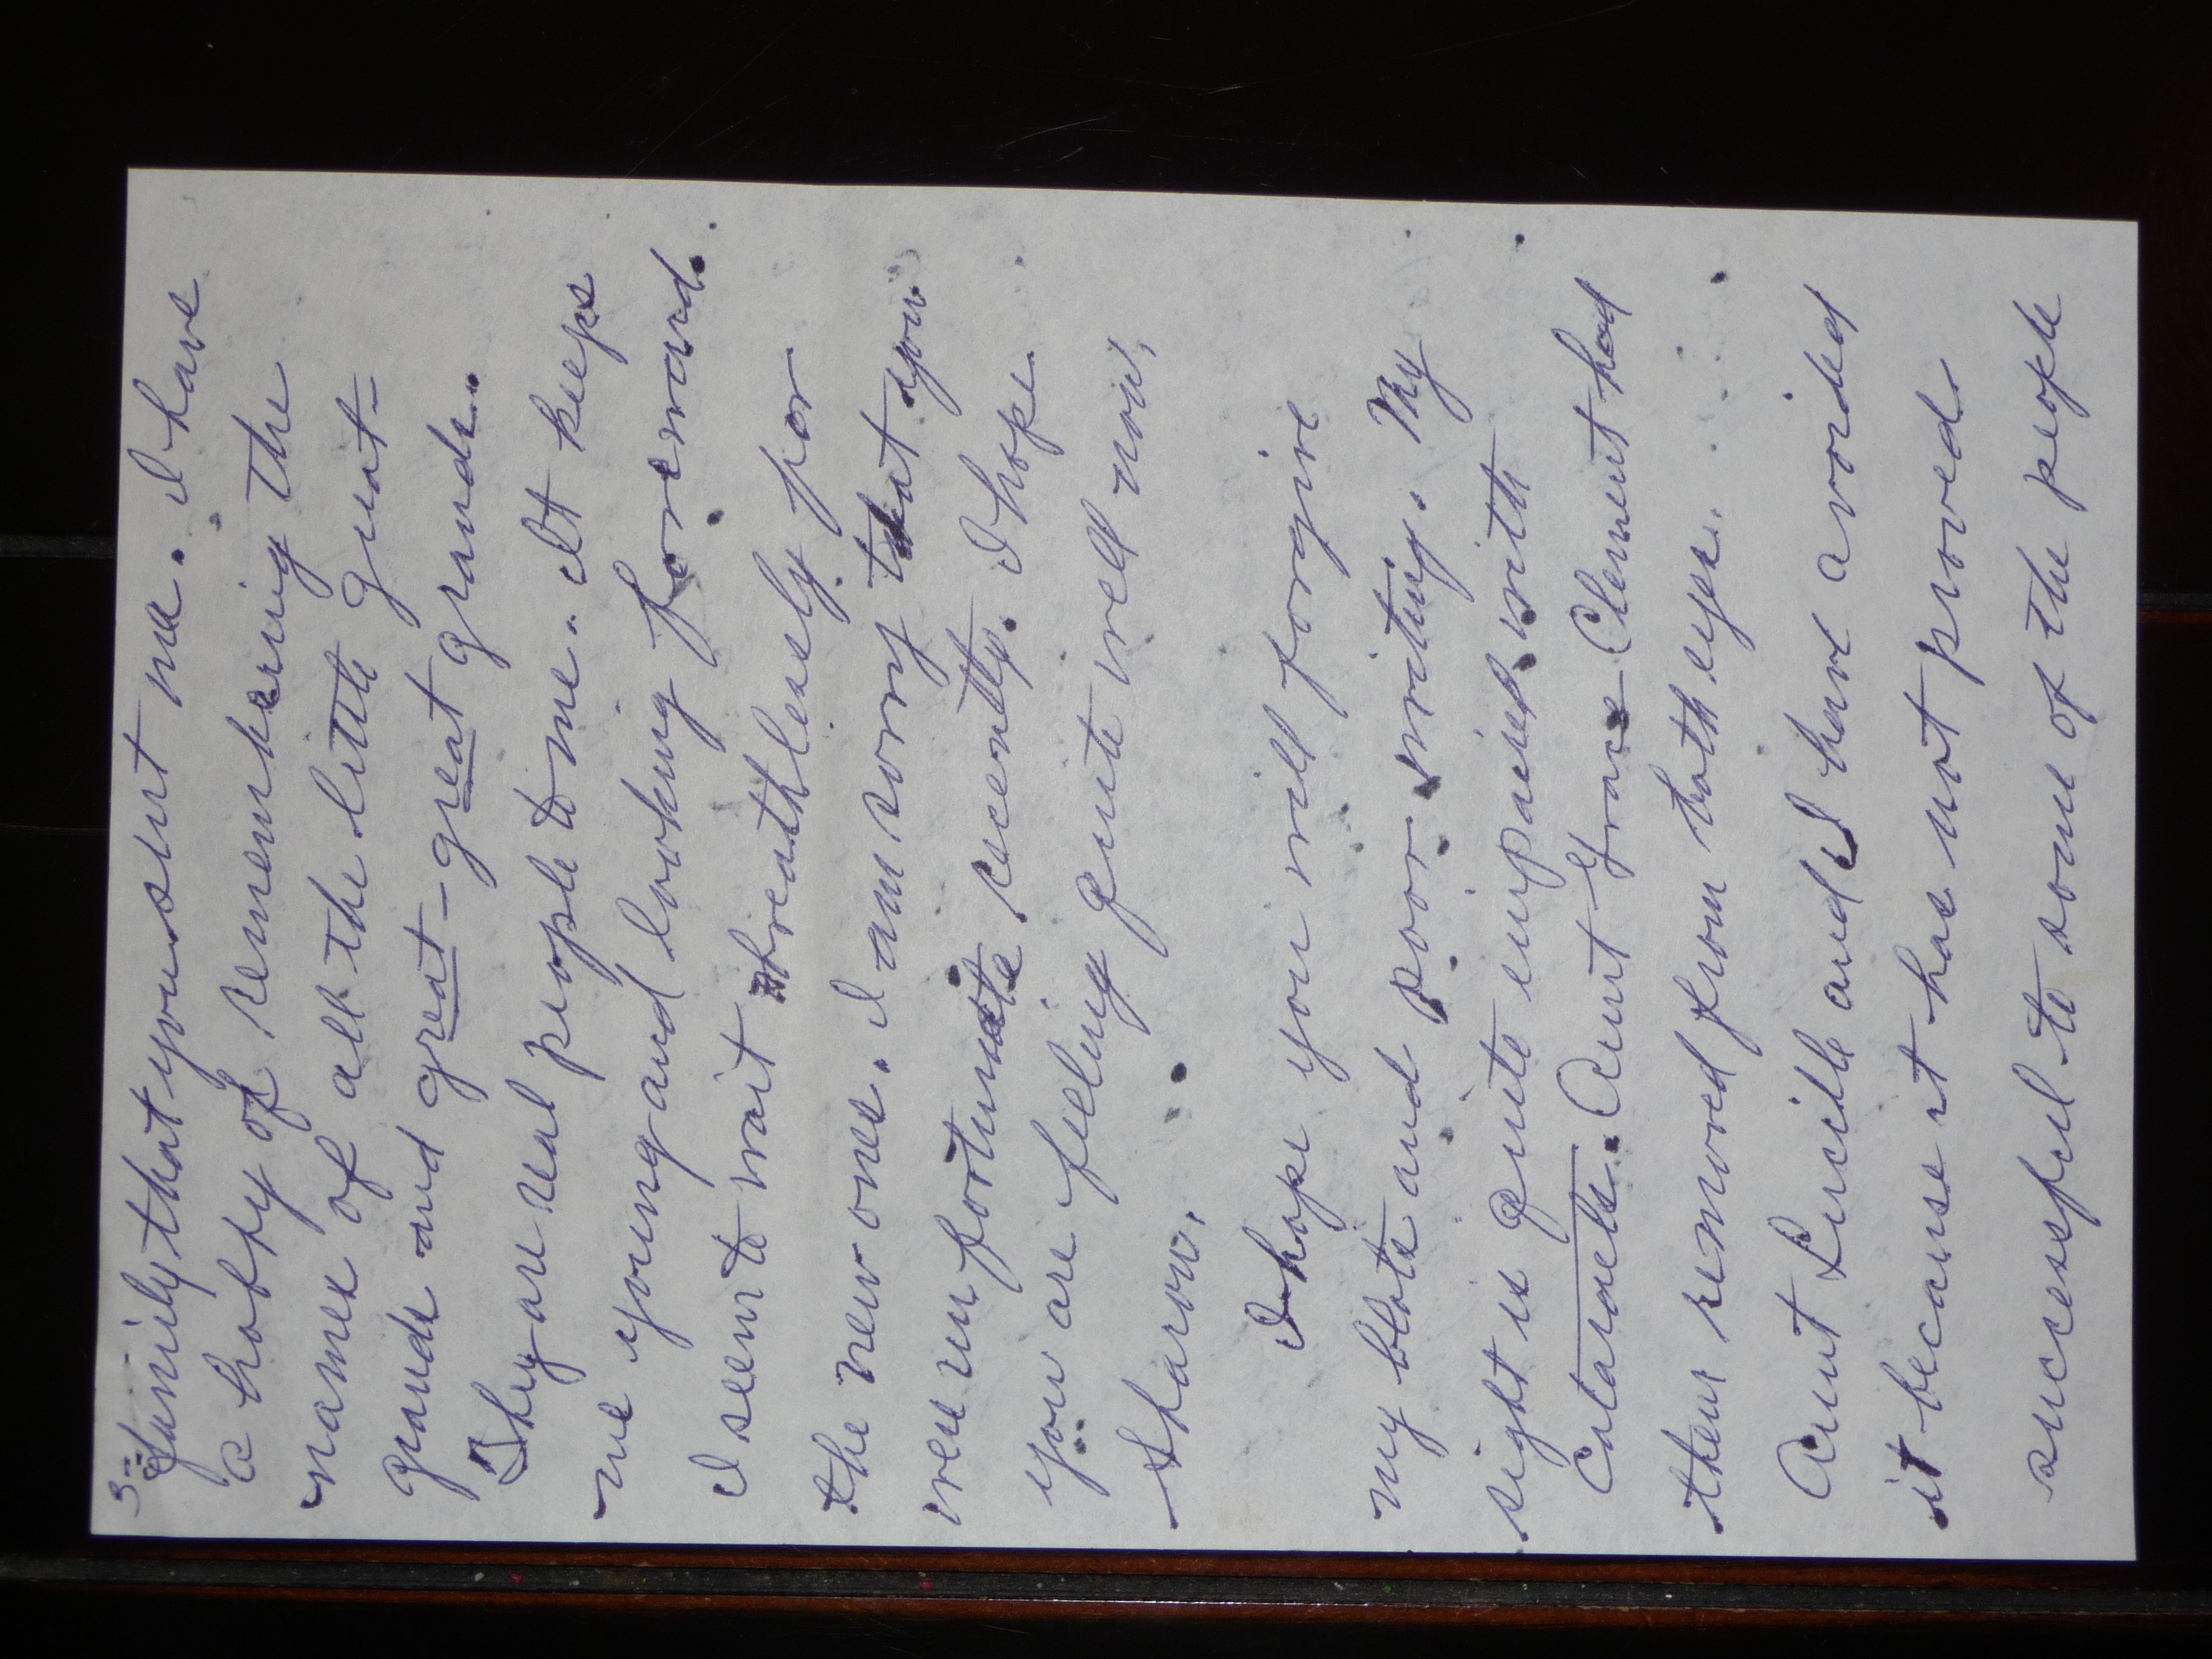 3-
family that you sent me. I have
a hobby of remembering the
names of all the little great-
grands and great-great grands.
They are real people to me. It keeps
me young and looking foreward.
I seem to wait breathlessly for
the new ones. I am sorry that you
were unfortunate recently. I hope
you are feeling quite well now,
Sharon.
I hope you will forgive
my blots and poor writing. My
sight is quite impaired with
Cataracts. Aunt Grace Clement had
them removed from both eyes.
Aunt Lucille and I have avoided
it because it has not proved
successful to some of the people